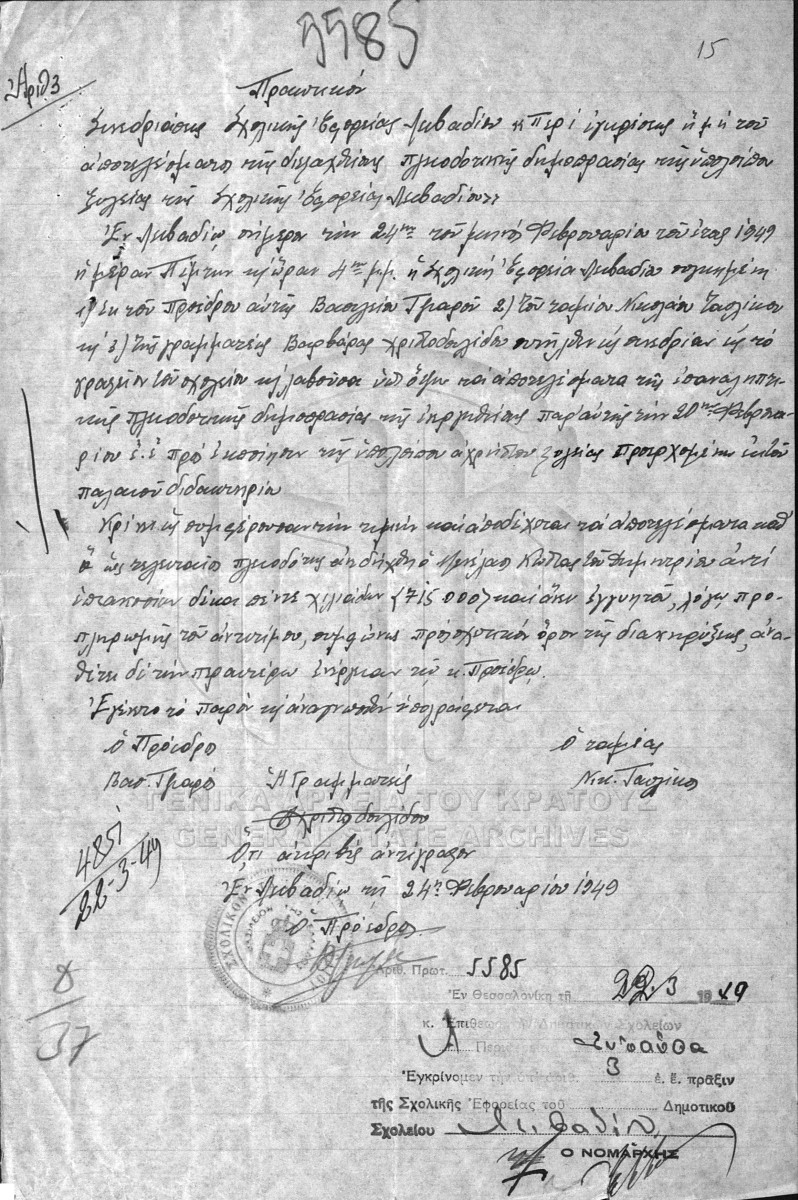 5585
15
Αριθ 3
Πρακτικόν
Συνεδριάσεως Σχολικής Εφορείας Λιβαδίου "Περί εγκρίσεως ή μή του
αποτελέσματος της διεξαχθείσης πλειοδοτικής δημοπρασίας της υπολοίπου
ξυλείας της Σχολικής Εφορείας Λιβαδίου"
Εν Λιβαδίω σήμερον την 24ην του μηνός Φεβρουαρίου του έτος 1949
ημέραν Πέμπτην κ ώραν 4ην μμ. η Σχολική Εφορεία Λιβαδίου συγκειμένη
1) Εκ του Προέδρου αυτής Βασιλείου 2) του ταμίου Νικολάου
κ 3) της γραμματέως Βαρβάρας Χριστοδουλίδου συνήλθεν εις συνεδρίαν εις το
γραφείον του σχολείου κ λαβούσα υπ' όψιν τα αποτελέσματα της επαναληπτι-
κής πλειοδοτικής δημοπρασίας της ενεργηθείσης παρ' αυτής την 20ην Φεβρουα-
ρίου ε.έ προς εκποίησιν της υπολοίπου αχρήστου ξυλείας προερχομένης εκ του
παλαιού διδακτηρίου
Κρίνει ως συμφέρουσαν την τιμήν και αποδέχεται τα αποτελέσματα καθ'
ά ως τελευταίος πλειοδότης ανεδείχθη ο Μενέλαος Κώττας του Δημητρίου αντί
επτακοσίων δέκα πέντε χιλιάδων (715 000) και άνευ εγγυητού, λόγω προ-
πληρωμής του αντιτίμου, συμφώνως προς σχετικόν όρον της διακηρύξεως, ανα-
θέτει δε την περαιτέρω ενέργειαν τω κ. Προέδρω.
Εγένετο το παρόν κ αναγνωσθέν υπογράφεται
Ο Πρόεδρος
Ο ταμίας
Βασ.
Η Γραμματεύς
Νικ.
ΓΕΝΙΚΑ ΑΡΧΕΙΑ ΤΟΥ ΚΡΑΤΟΥΣ
Χριστοδουλίδου
GENERAL STATE ARCHIVES
4851
22-3-49
Ότι ακριβές αντίγραφον
Εν Λιβαδίω τη 24η Φεβρουαρίου 1949
Ο Πρόεδρος
ΣΧΟΛΙΚΟΝ
8
37
Αριθ. Πρωτ. 5585
Ἐν Θεσσαλονίκῃ τῇ 22.3 1949
κ. Ἐπιθεωρ. Δημοτικῶν Σχολείων
Λ Περιφ.
Ἐγκρίνομεν τὴν ὑπ' ἀριθ. 3 ἐ. ἔ. πρᾶξιν
τῆς Σχολικῆς Ἐφορείας τοῦ Δημοτικοῦ
Σχολείου Λιβαδίου
Ο ΝΟΜΑΡΧΗΣ